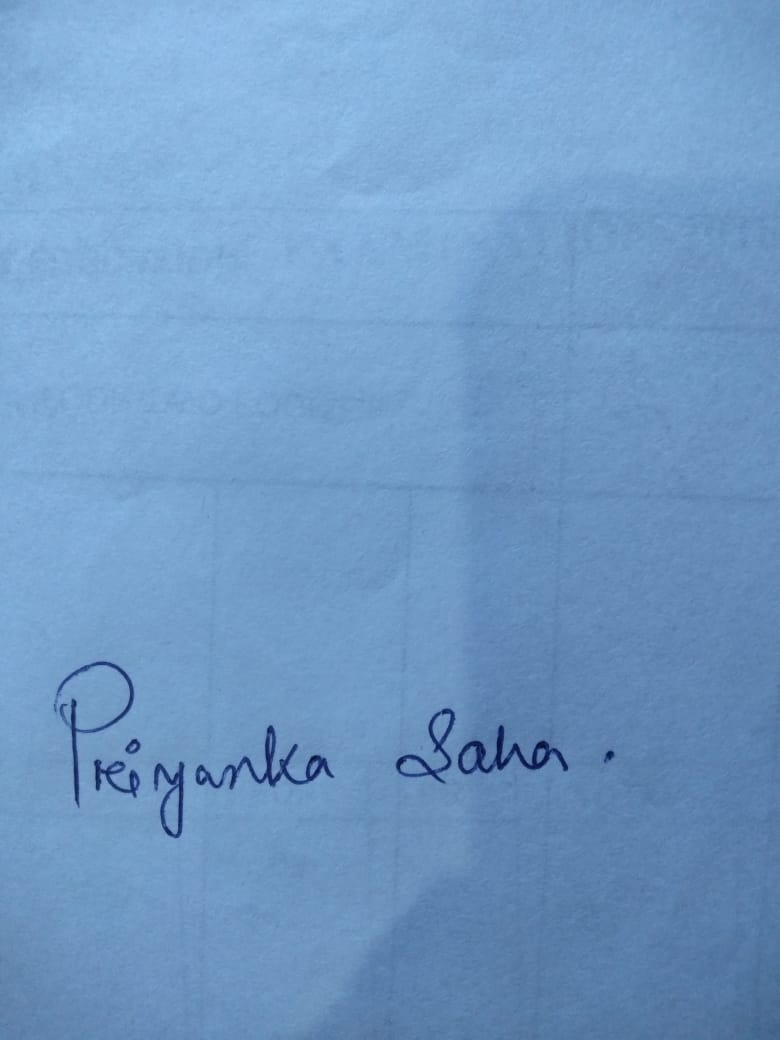 Priyanka Saha.